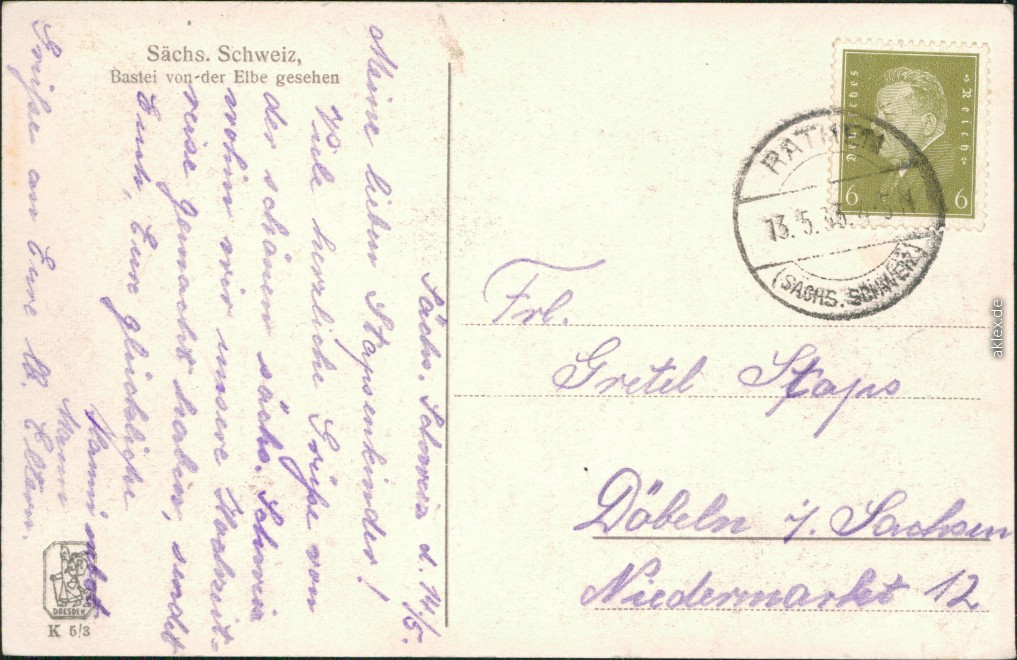 Sächs. Schweiz,
Bastei von der Elbe gesehen
Sächs. Schweiz d. 14/5.
Meine lieben Stapsenkinder!
Viele herzliche Grüße von
der schönen sächs. Schweiz
wohin wir unsere Hochzeit-
reise gemacht haben, sendet
Euch, Eure glückliche
Hanni
Mann
Grüße an Eure lb. Eltern.
DRESDEN
K 5/3
Deutsches Reich
6 6
RATHEN
13.5.33.
(SÄCHS. SCHWEIZ)
Frl.
Gretel Staps
Döbeln i/. Sachsen
Niedermarkt 12
aklex.de